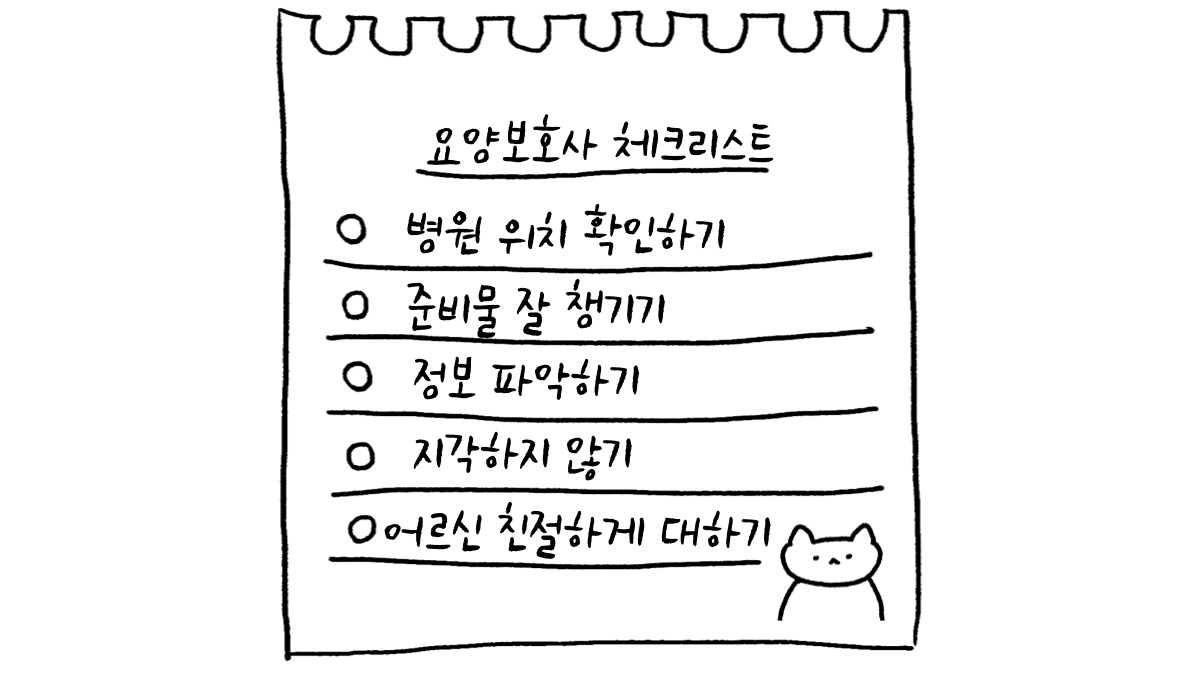 요양보호사 체크리스트
병원 위치 확인하기
준비물 잘 챙기기
정보 파악하기
지각하지 않기
어르신 친절하게 대하기